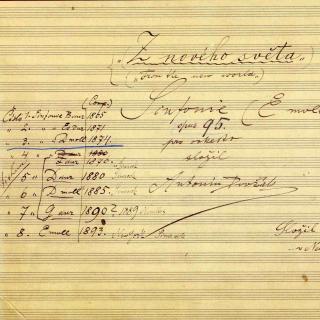 „Z nového světa"
("From the new world.")
Sinfonie (E moll
opus 95.
pro orkestr
složil
Antonín Dvořák
(Comp.)
Číslo 1. Sinfonie B dur 1865
" 2. " Es dur 1871
" 3. " D moll 1874.
" 4
" 5 D dur 1880
" 6 D moll 1885.
" 7 G dur 1890? 1889
" 8. E moll 1893.
Složil